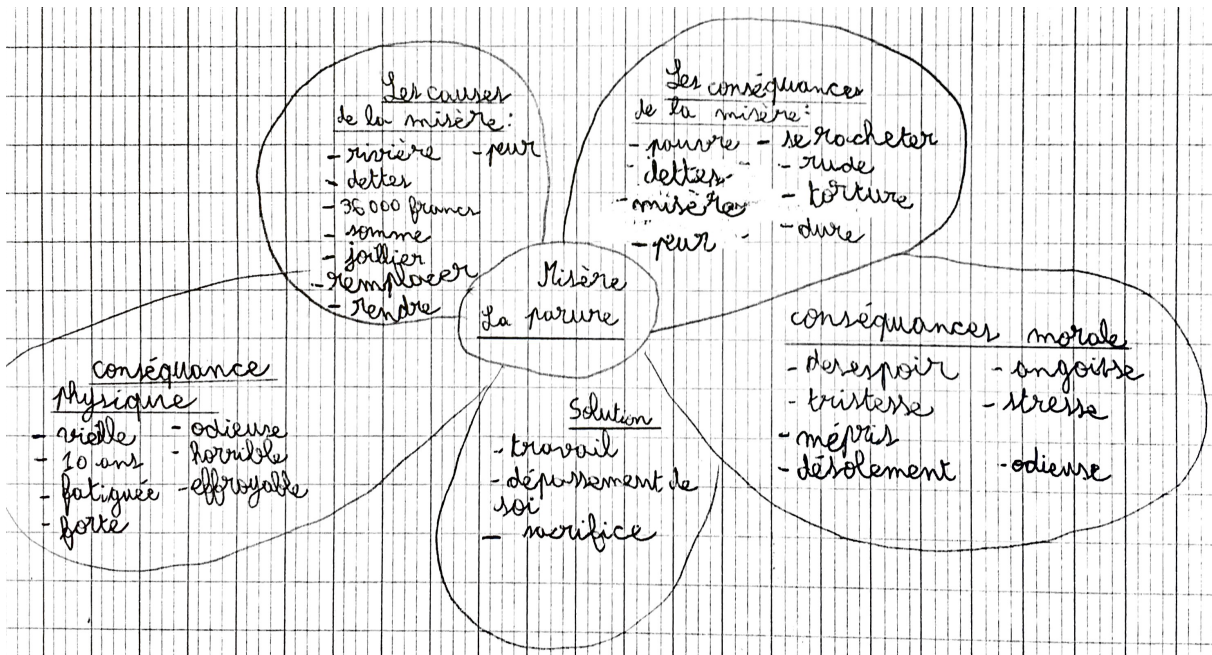 Les causes
de la misère:
- rivière - peur
- dettes
- 36 000 francs
- somme
- joillier
- remplacer
- rendre
Les conséquances
de la misère:
- pauvre - se racheter
- dettes - rude
- misère - torture
- peur - dure
Misère
La parure
conséquance
physique
- vielle - odieuse
- 10 ans - horrible
- fatiguée - effroyable
- forte
Solution
- travail
- dépassement de
soi
- sacrifice
conséquances morale
- desespoir - angoisse
- tristesse - stresse
- mépris
- désolement - odieuse